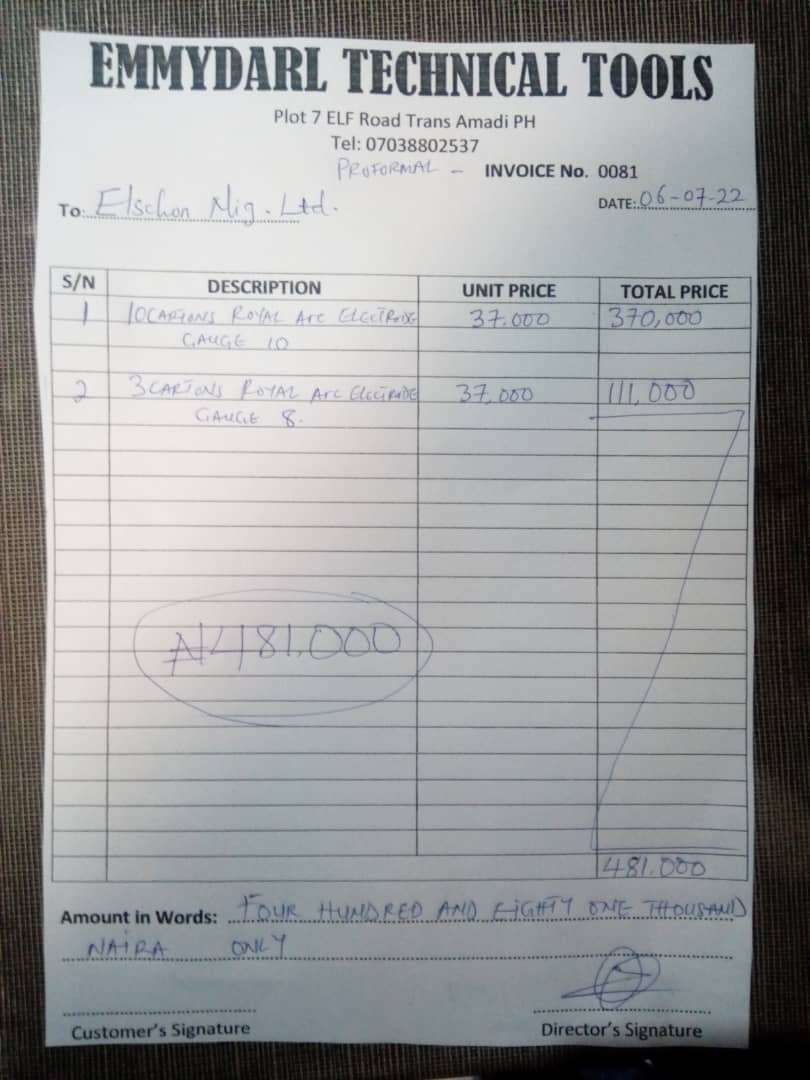 EMMYDARL TECHNICAL TOOLS
Plot 7 ELF Road Trans Amadi PH
Tel: 07038802537
PROFORMAL - INVOICE No. 0081
To: Elschon Nig. Ltd. DATE: 06-07-22
S/N DESCRIPTION UNIT PRICE TOTAL PRICE
1 10 CARTONS ROYAL Arc ELECTRODE 37.000 370,000
GAUGE 10
2 3 CARTONS ROYAL Arc ELECTRODE 37,000 111,000
GAUGE 8.
₦481,000
481.000
Amount in Words: FOUR HUNDRED AND EIGHTY ONE THOUSAND
NAIRA ONLY
Customer's Signature Director's Signature